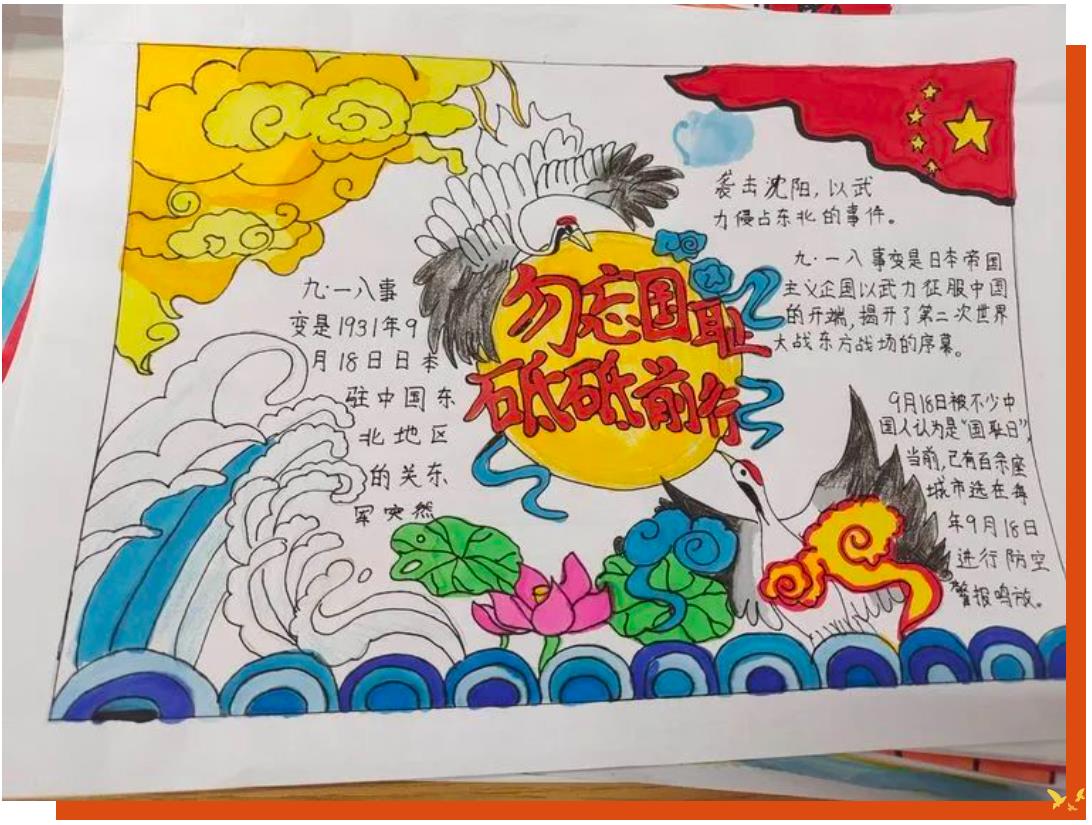 勿忘国耻
砥砥前行
九·一八事
变是1931年9
月18日日本
驻中国东
北地区
的关东
军突然
袭击沈阳，以武
力侵占东北的事件。
九·一八事变是日本帝国
主义企国以武力征服中国
的开端，揭开了第二次世界
大战东方战场的序幕。
9月18日被不少中
国人认为是“国耻日”，
当前，已有百余座
城市选在每
年9月18日
进行防空
警报鸣放。